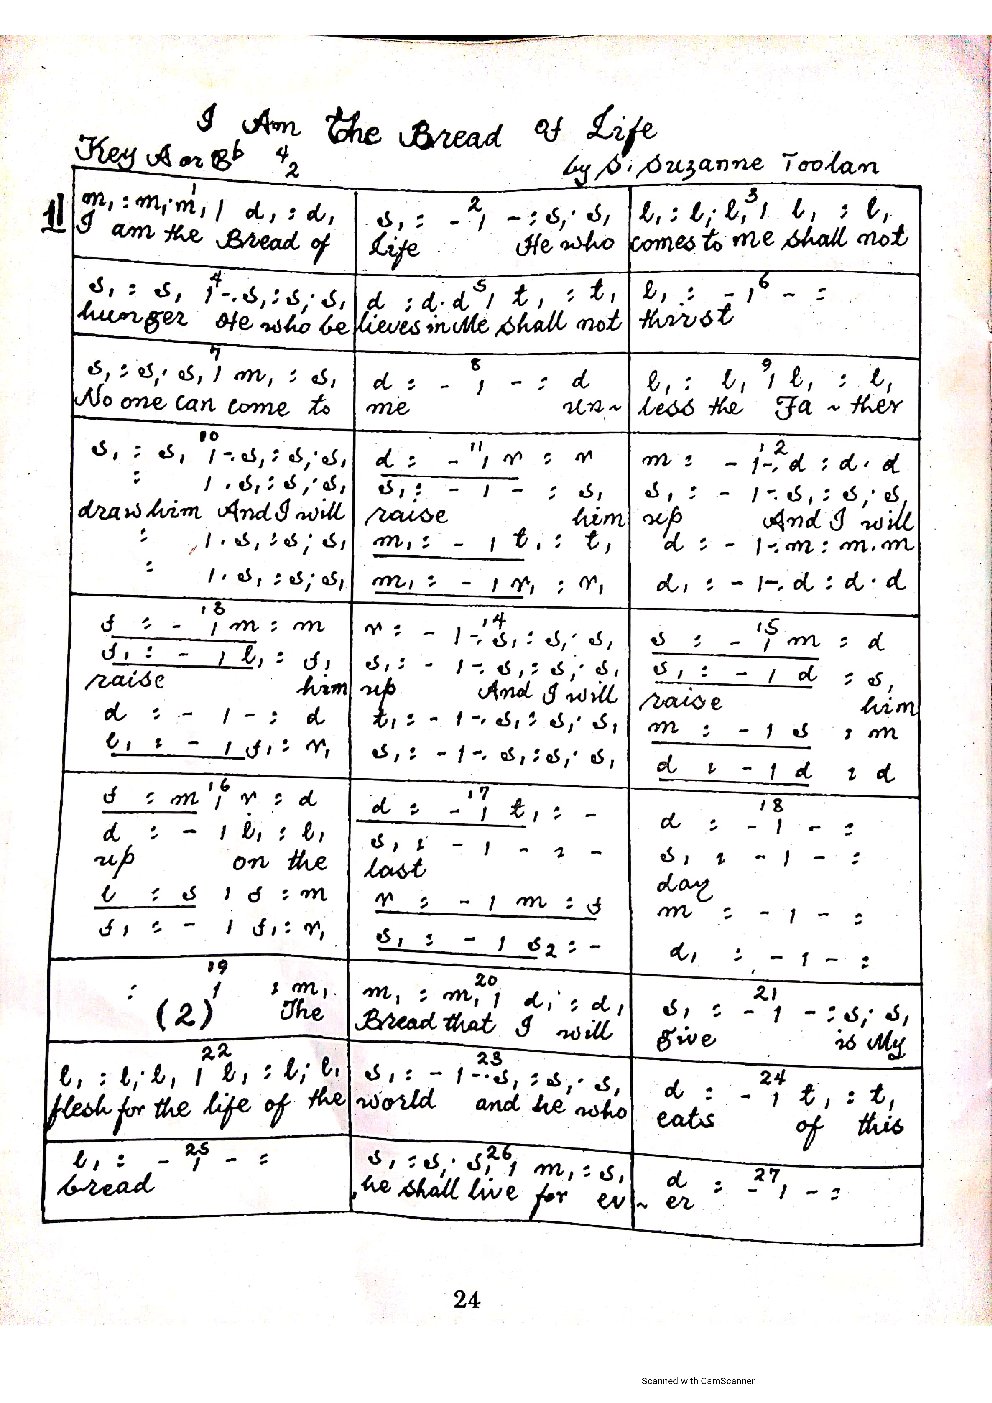 I Am The Bread Of Life
Key A or Bb 4/2
by S. Suzanne Toolan
1
1
m, : m,. m, | d, : d,
I am the Bread of
2
s, : - | - : s,. s,
Life He who
3
l, : l,. l, | l, : l,
comes to me shall not
4
s, : s, | -. s, : s,. s,
hunger He who be
5
d : d. d | t, : t,
lieves in Me shall not
6
l, : - | - :
thirst
7
s, : s,. s, | m, : s,
No one can come to
8
d : - | - : d
me un~
9
l, : l, | l, : l,
less the Fa ~ ther
10
s, : s, | -. s, : s,. s,
: | . s, : s,. s,
draw him And I will
: | . s, : s,. s,
: | . s, : s,. s,
11
d : - | r : r
s, : - | - : s,
raise him
m, : - | t, : t,
m, : - | r, : r,
12
m : - | -. d : d. d
s, : - | -. s, : s,. s,
up And I will
d : - | -. m : m. m
d, : - | -. d : d. d
13
f : - | m : m
f, : - | l, : s,
raise him
d : - | - : d
l, : - | f, : r,
14
r : - | -. s, : s,. s,
s, : - | -. s, : s,. s,
up And I will
t, : - | -. s, : s,. s,
s, : - | -. s, : s,. s,
15
s : - | m : d
s, : - | d : s,
raise him
m : - | s : m
d : - | d : d
16
f : m | r : d
d : - | l, : l,
up on the
l : s | f : m
f, : - | f, : r,
17
d : - | t, : -
s, : - | - : -
last
r : - | m : f
s, : - | s2 : -
18
d : - | - :
s, : - | - :
day
m : - | - :
d, : - | - :
19
: | : m,
(2) The
20
m, : m, | d, : d,
Bread that I will
21
s, : - | - : s,. s,
give is My
22
l, : l,. l, | l, : l,. l,
flesh for the life of the
23
s, : - | -. s, : s,. s,
world and he who
24
d : - | t, : t,
eats of this
25
l, : - | - :
bread
26
s, : s,. s, | m, : s,
he shall live for ev
27
d : - | - :
~ er
24
Scanned with CamScanner